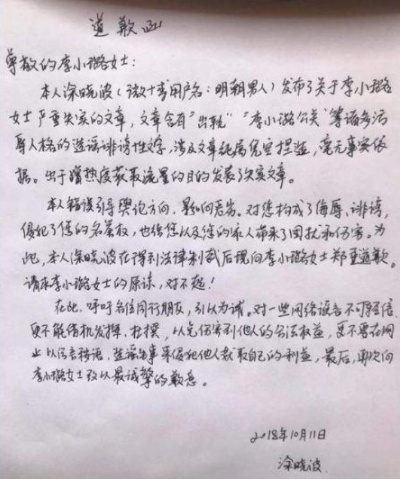 道歉函
尊敬的李小璐女士：
本人深晓波（微博用户名：明朝男人）发布了关于李小璐
女士严重失实的文章，文章含有“出轨”“李小璐公关”等诸多污
辱人格的造谣诽谤性文字，涉及文章纯属凭空捏造，毫无事实依
据。出于蹭热度获取流量的目的发表了失实文章。
本人错误引导舆论方向，影响恶劣。对您构成了侮辱、诽谤，
侵犯了您的名誉权，也给您以及您的家人带来了困扰和伤害。为
此，本人深晓波在得到法律制裁后现向李小璐女士郑重道歉。
请求李小璐女士的原谅，对不起！
在此，呼吁各位同行朋友，引以为诫。对一些网络谣言不可轻信，
更不能借机发挥、杜撰，以免伤害到他人的合法权益，更不要在网
上以传言转语，造谣生事来侵犯他人获取自己的利益，最后，再次向
李小璐女士致以最诚挚的歉意。
2018年10月11日
深晓波